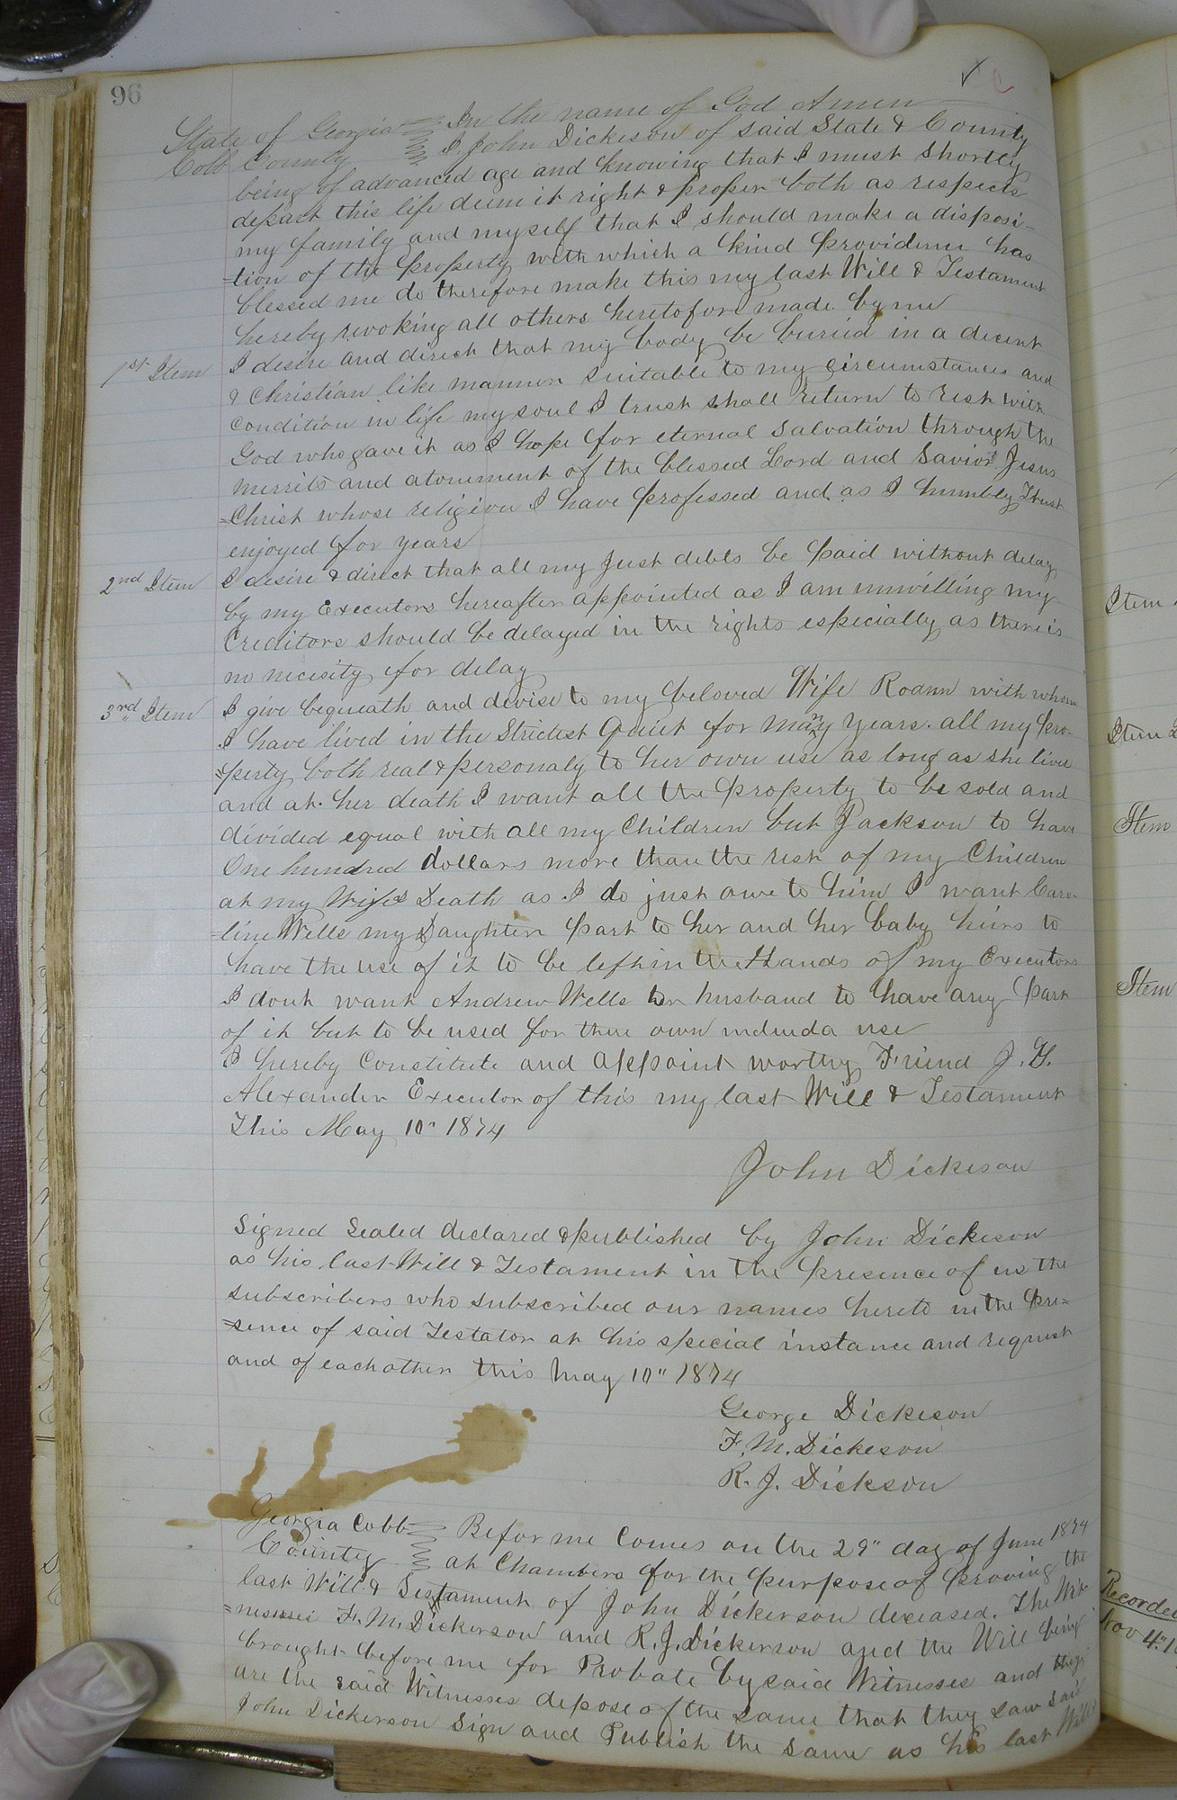 96
State of Georgia In the name of God Amen
Cobb County I John Dickeson of said State & County
being of advanced age and knowing that I must shortly
depart this life deem it right & proper both as respects
my family and myself that I should make a disposi-
=tion of the property with which a kind providence has
blessed me do therefore make this my last Will & Testament
hereby revoking all others heretofore made by me
1st Item I desire and direct that my body be buried in a decent
& Christian like manner suitable to my circumstances and
condition in life my soul I trust shall return to rest with
God who gave it as I hope for eternal salvation through the
merrits and atonement of the blessed Lord and Savior Jesus
=Christ whose religion I have professed and as I humbly Trust
enjoyed for years
2nd Item I desire & direct that all my Just debts be paid without delay
by my Executors hereafter appointed as I am unwilling my
Creditors should be delayed in the rights especially as there is
no necisity for delay
3rd Item I give bequeath and devise to my beloved Wife Roann with whom
I have lived in the Strictest Quiet for many years. all my pro-
=perty both real & personaly to her own use as long as she lives
and at her death I want all the property to be sold and
divided equal with all my Children but Jackson to have
One hundred dollars more than the rest of my Children
at my Wifes Death as I do just owe to him I want Caro-
=line Wells my Daughter part to her and her baby heirs to
have the use of it to be left in the Hands of my Executors
I dont want Andrew Wells her husband to have any part
of it but to be used for there own use
I hereby Constitute and appoint worthy Friend J. H.
Alexander Executor of this my last Will & Testament
This May 10" 1874
John Dickeson
Signed Sealed declared & published by John Dickeson
as his last Will & Testament in the presence of us the
subscribers who subscribed our names hereto in the pre=
=sence of said Testator at his special instance and request
and of each other this May 10" 1874
George Dickeson
F. M. Dickeson
R. J. Dickson
Georgia Cobb Before me Comes on the 29" day of June 1874
County at Chambers for the purpose of proving the
last Will & Testament of John Dickerson deceased. The Wit-
=nesses F. M. Dickerson and R. J. Dickerson and the Will being
brought before me for Probate by said Witnesses and they
are the said Witnesses depose of the same that they saw said
John Dickerson Sign and Publish the same as his last Will
Item
Item
Item
Item
Recorded
Nov 4"